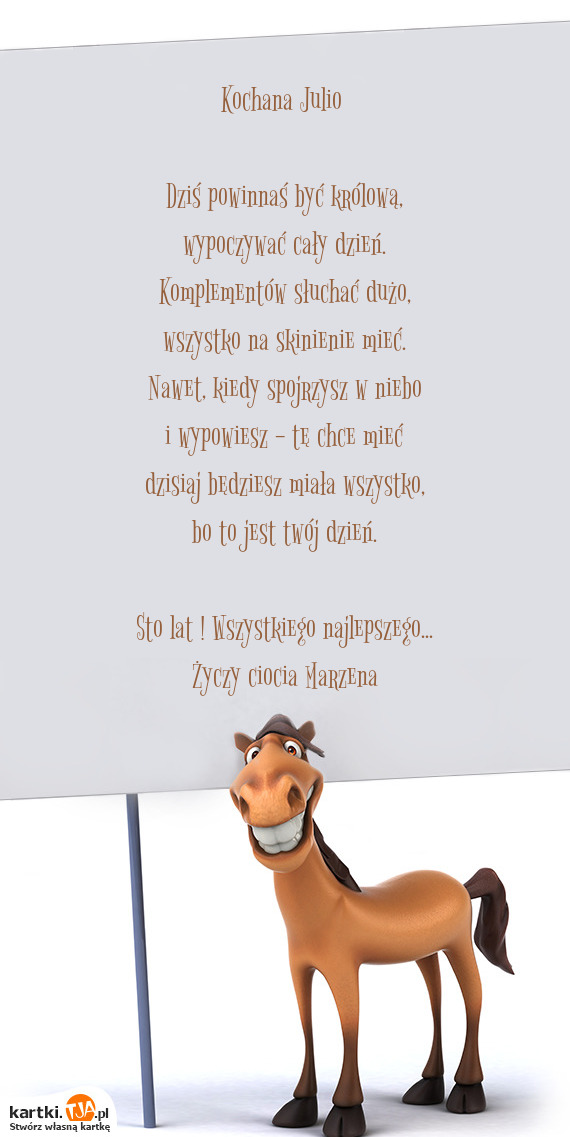 Kochana Julio
Dziś powinnaś być królową,
wypoczywać cały dzień.
Komplementów słuchać dużo,
wszystko na skinienie mieć.
Nawet, kiedy spojrzysz w niebo
i wypowiesz - tę chce mieć
dzisiaj będziesz miała wszystko,
bo to jest twój dzień.
Sto lat ! Wszystkiego najlepszego...
Życzy ciocia Marzena
kartki.TJA.pl
Stwórz własną kartkę